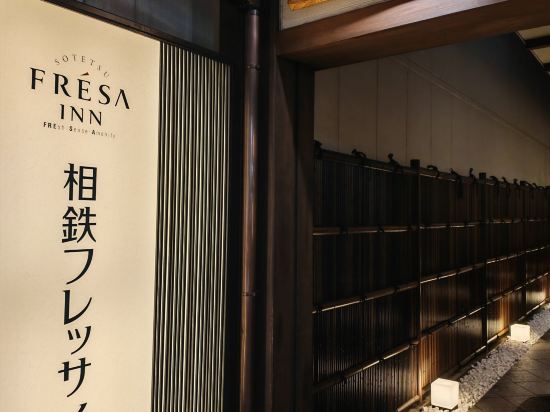 SOTETSU
FRÉSA
INN
FREsh Sense Amenity
相鉄フレッサイ